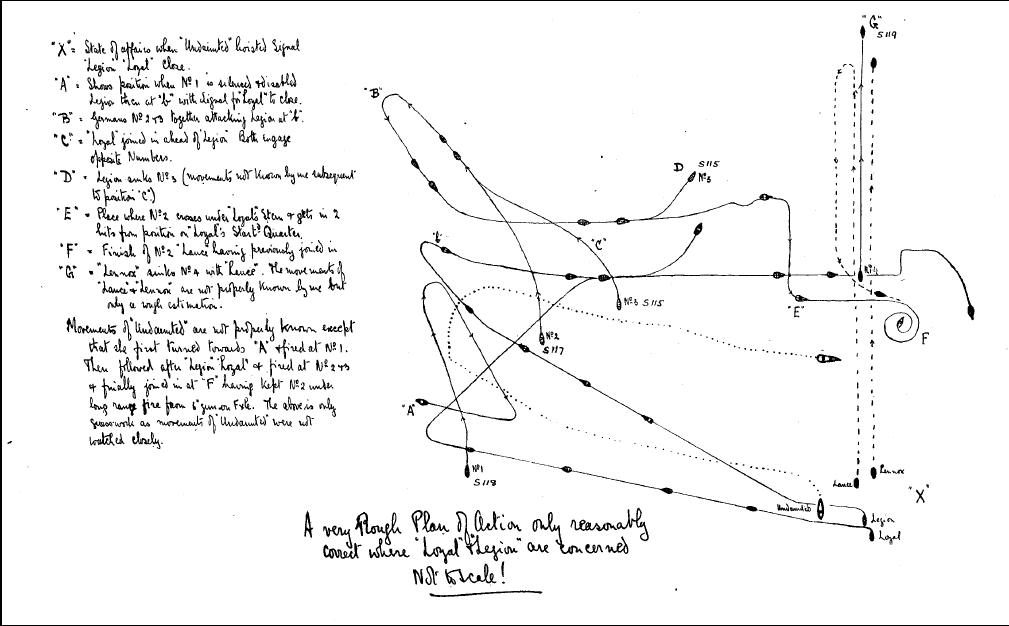 "X" = State of affairs when "Undaunted" hoisted Signal
"Legion" "Loyal" Close.
"A" = Shows position when Nº 1 is silenced & disabled
Legion then at "b" with signal for "Loyal" to close.
"B" = Germans Nº 2 & 3 together attacking Legion at "b".
"C" = "Loyal" joined in ahead of "Legion" Both engage
opposite Numbers.
"D" = Legion sinks Nº 3 (movements not known by me subsequent
to position "C")
"E" = Place where Nº 2 crosses under "Loyal's" Stern & gets in 2
hits from position on "Loyal's Starbd Quarter.
"F" = Finish of Nº 2 "Lance" having previously joined in
"G" = "Lennox" sinks Nº 4 with "Lance". The movements of
"Lance" & "Lennox" are not properly known by me but
only a rough estimation.
Movements of "Undaunted" are not properly known except
that she first turned towards "A" & fired at Nº 1.
Then followed after "Legion" "Loyal" & fired at Nº 2 & 3
& finally joined in at "F" having kept Nº 2 under
long range fire from 6" gun on Fxle. The above is only
guesswork as movements of "Undaunted" were not
watched closely.
"G"
S 119
"B"
D
S 115
Nº 3
"b"
"C"
Nº 4
Nº 3 S 115
"E"
F
Nº 2
S 117
"A"
Nº 1
S 118
Lance
Lennox
"X"
Undaunted
Legion
Loyal
A very Rough Plan of Action only reasonably
correct where "Loyal" & "Legion" are concerned
Not to scale!